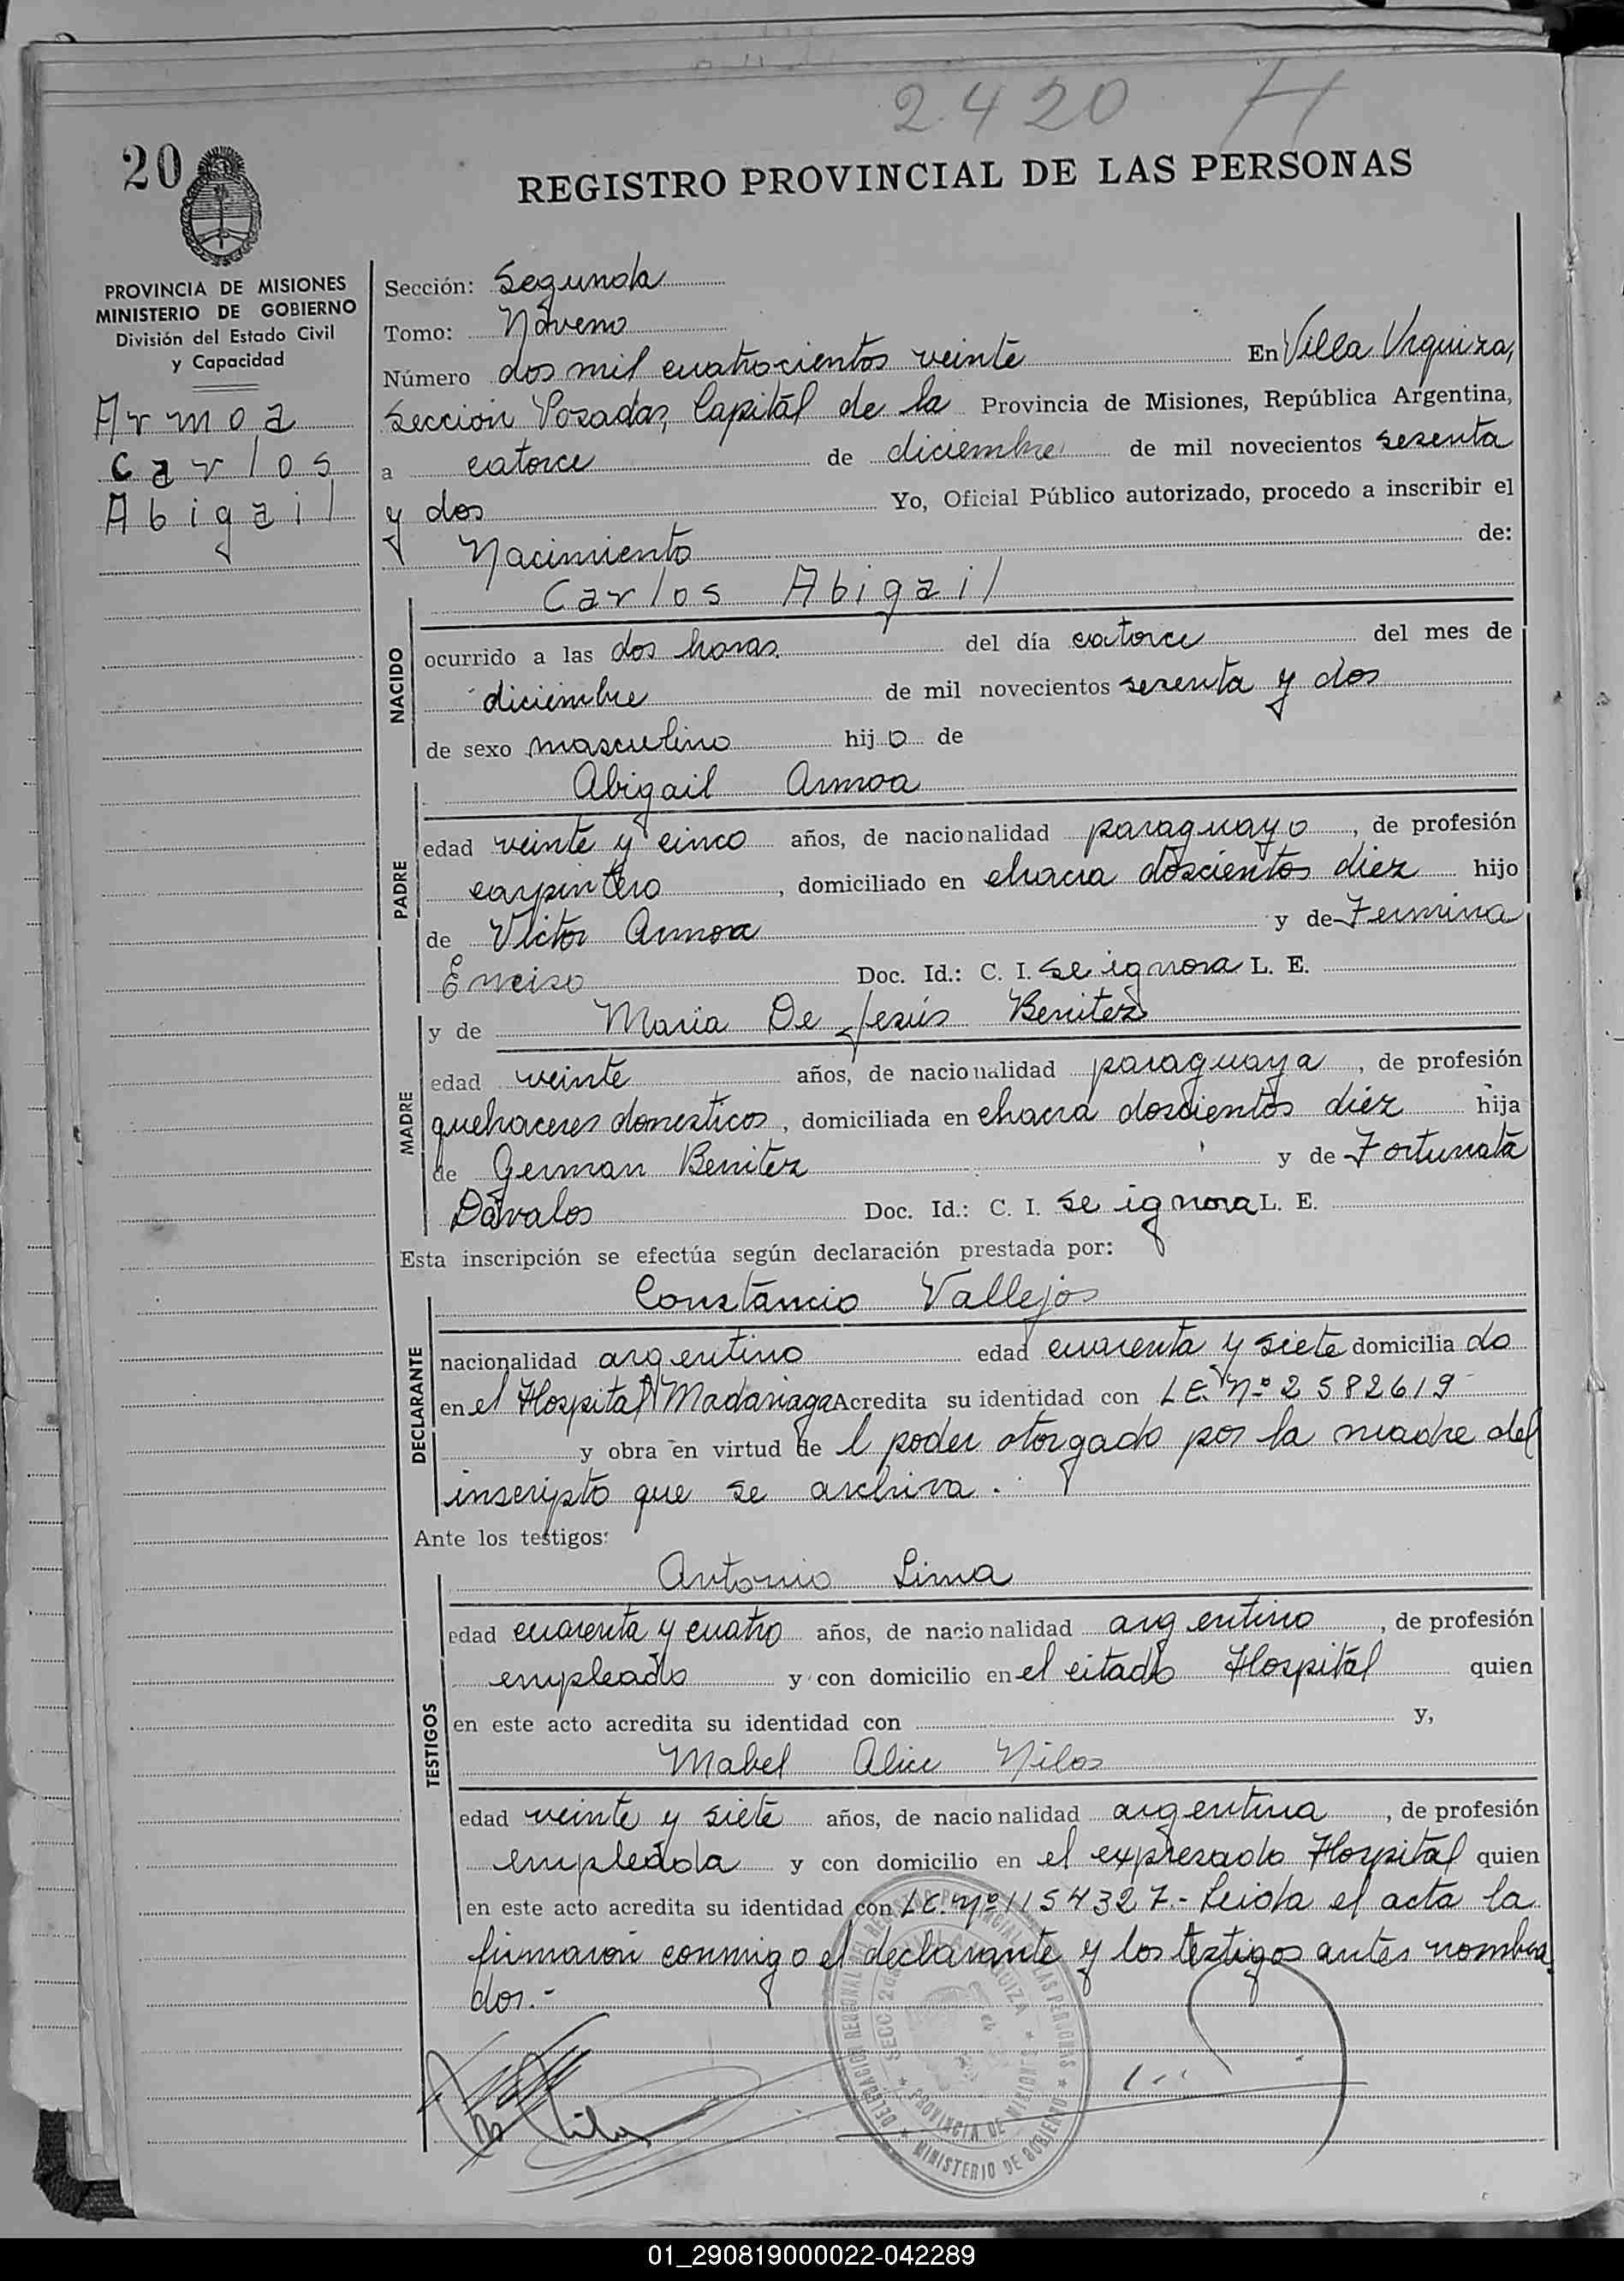 2420 H
20
REGISTRO PROVINCIAL DE LAS PERSONAS
PROVINCIA DE MISIONES
MINISTERIO DE GOBIERNO
División del Estado Civil
y Capacidad
Armoa
Carlos
Abigail
Sección: Segunda
Tomo: Noveno
Número dos mil cuatrocientos veinte En Villa Urquiza,
Sección Posadas, Capital de la Provincia de Misiones, República Argentina,
a catorce de diciembre de mil novecientos sesenta
y dos Yo, Oficial Público autorizado, procedo a inscribir el
Nacimiento de:
Carlos Abigail
NACIDO
ocurrido a las dos horas. del día catorce del mes de
diciembre de mil novecientos sesenta y dos
de sexo masculino hijo de
Abigail Armoa
PADRE
edad veinte y cinco años, de nacionalidad paraguayo, de profesión
carpintero, domiciliado en chacra doscientos diez hijo
de Victor Armoa y de Fermina
Enciso Doc. Id.: C. I. se ignora L. E.
y de Maria De Jesús Benitez
MADRE
edad veinte años, de nacionalidad paraguaya, de profesión
quehaceres domesticos, domiciliada en chacra doscientos diez hija
de German Benitez y de Fortunata
Dávalos Doc. Id.: C. I. se ignora L. E.
Esta inscripción se efectúa según declaración prestada por:
Constancio Vallejos
DECLARANTE
nacionalidad argentino edad cuarenta y siete domiciliado
en el Hospital Madariaga Acredita su identidad con L.E. Nº 2582619
y obra en virtud de l poder otorgado por la madre del
inscripto que se archiva.
Ante los testigos:
Antonio Lima
TESTIGOS
edad cuarenta y cuatro años, de nacionalidad argentino, de profesión
empleado y con domicilio en el citado Hospital quien
en este acto acredita su identidad con y,
Mabel Alice Nilos
edad veinte y siete años, de nacionalidad argentina, de profesión
empleada y con domicilio en el expresado Hospital quien
en este acto acredita su identidad con L.C. Nº 1154327.- Leida el acta la
firmaron conmigo el declarante y los testigos antes nombra
dos.-
PROVINCIA DE MISIONES
MINISTERIO DE GOBIERNO
01_290819000022-042289